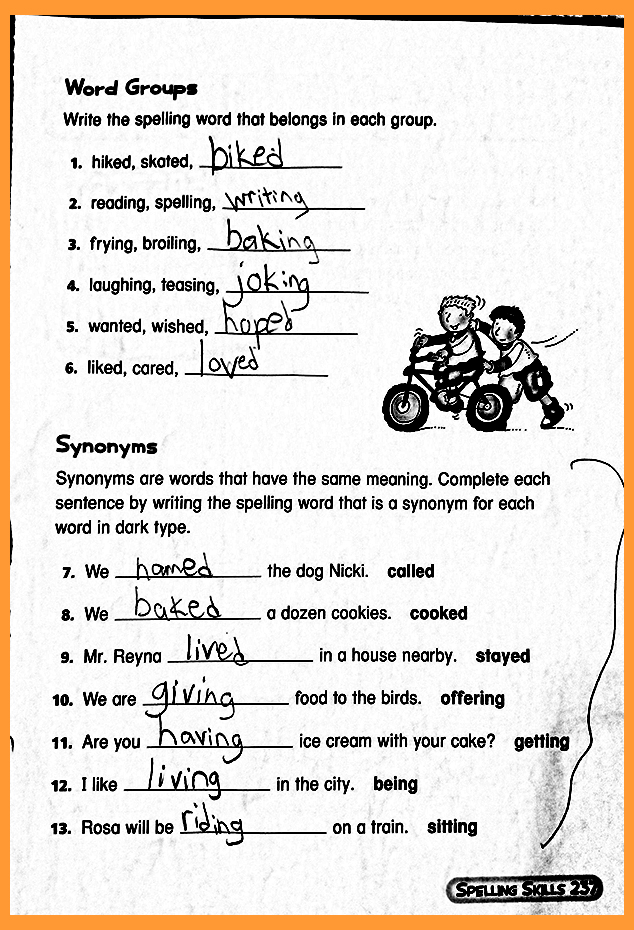 Word Groups
Write the spelling word that belongs in each group.
1. hiked, skated, biked
2. reading, spelling, writing
3. frying, broiling, baking
4. laughing, teasing, joking
5. wanted, wished, hoped
6. liked, cared, loved
Synonyms
Synonyms are words that have the same meaning. Complete each
sentence by writing the spelling word that is a synonym for each
word in dark type.
7. We named the dog Nicki. called
8. We baked a dozen cookies. cooked
9. Mr. Reyna lived in a house nearby. stayed
10. We are giving food to the birds. offering
11. Are you having ice cream with your cake? getting
12. I like living in the city. being
13. Rosa will be riding on a train. sitting
SPELLING SKILLS 237